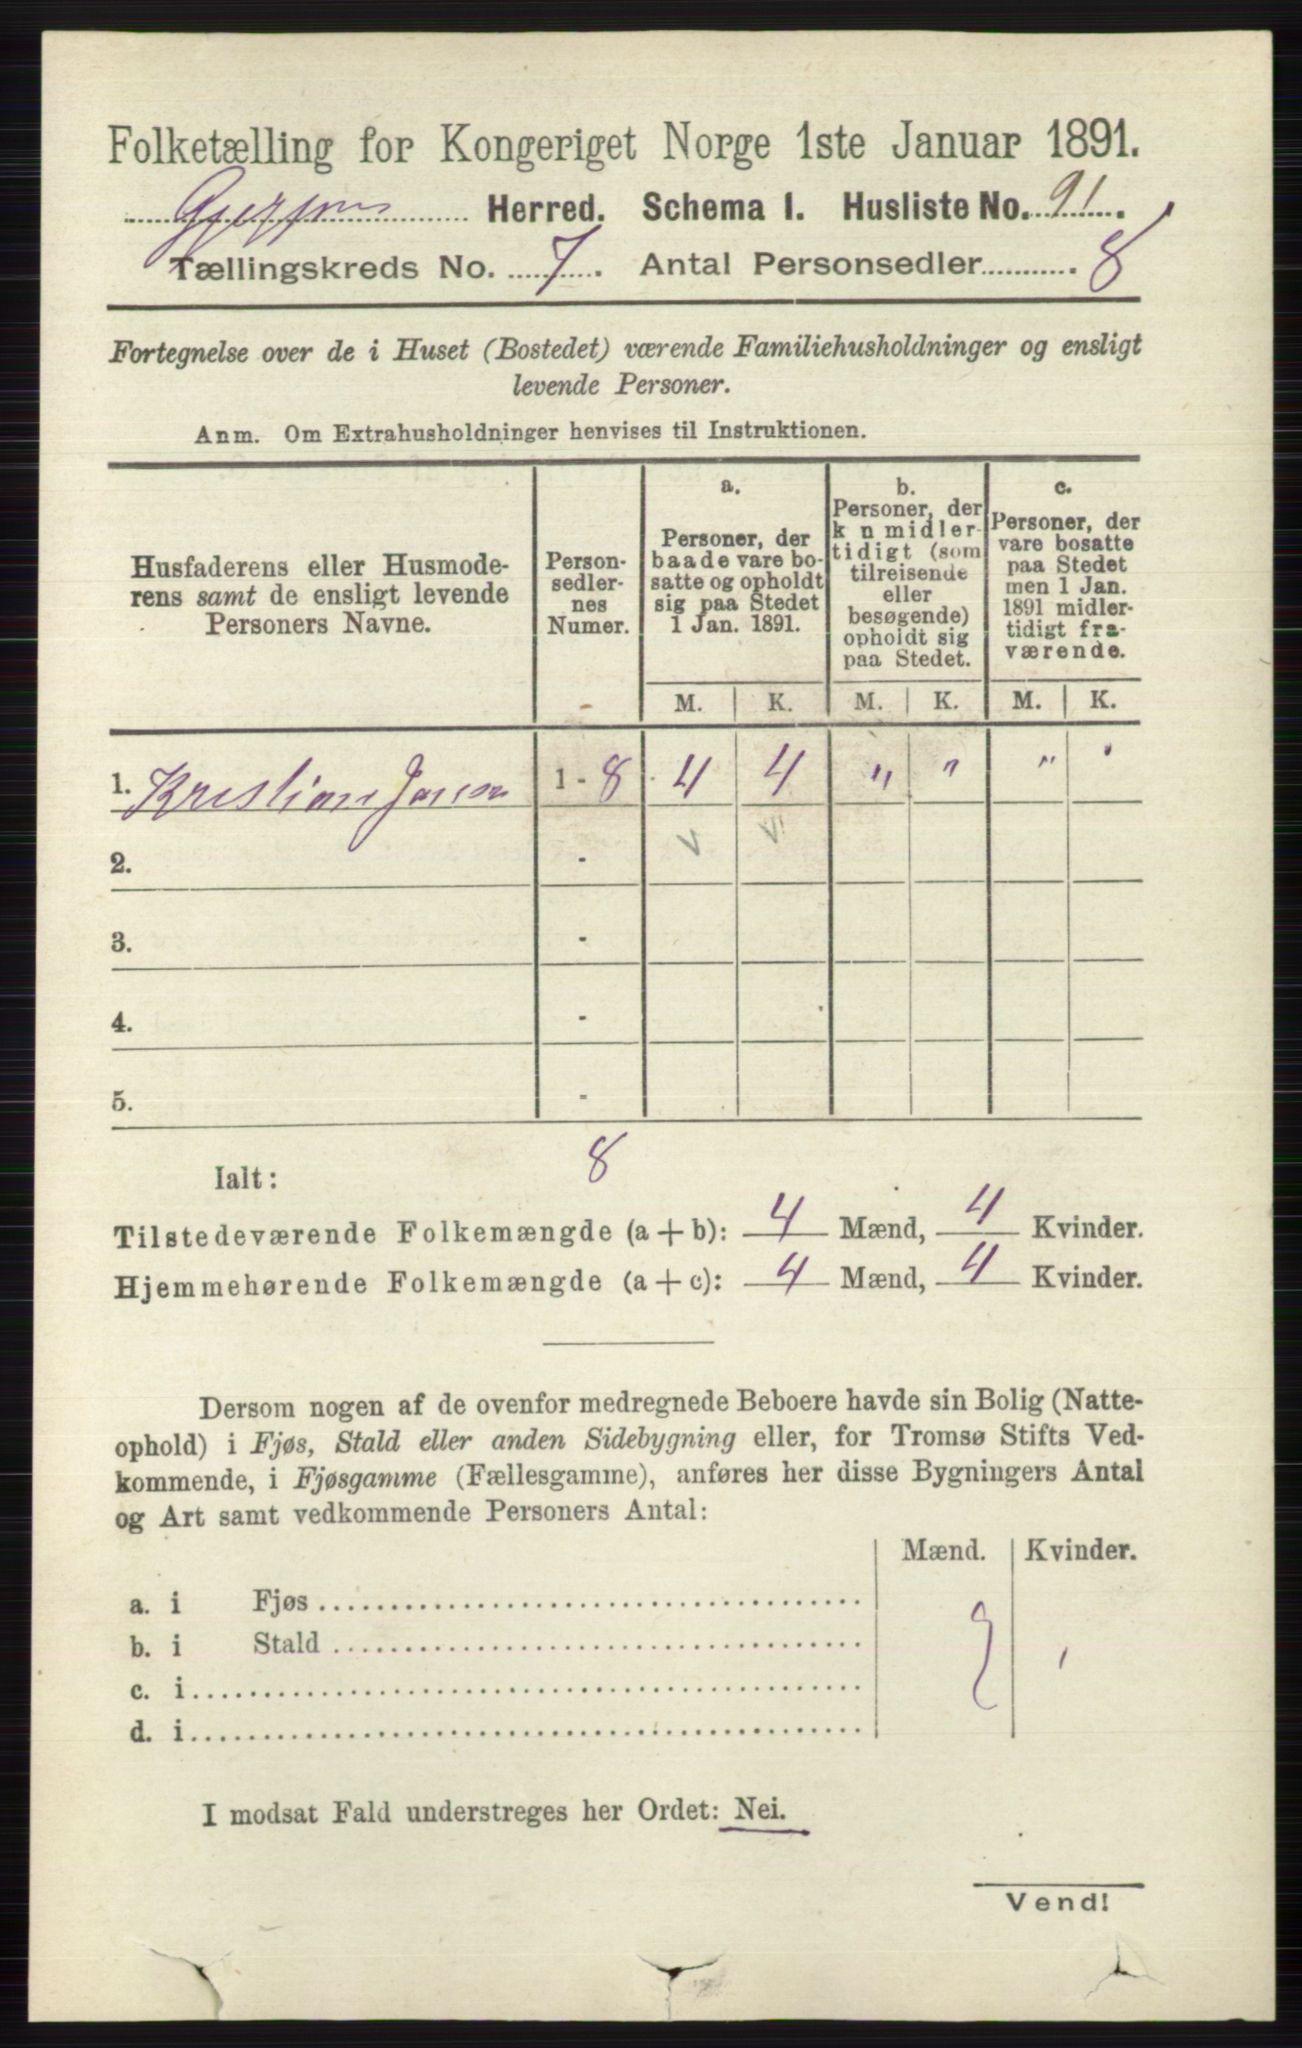 Folketælling for Kongeriget Norge 1ste Januar 1891.
Gjerpens Herred. Schema I. Husliste No. 91.
Tællingskreds No. 7. Antal Personsedler 8
Fortegnelse over de i Huset (Bostedet) værende Familiehusholdninger og ensligt
levende Personer.
Anm. Om Extrahusholdninger henvises til Instruktionen.
Husfaderens eller Husmode-
rens samt de ensligt levende
Personers Navne.
Person-
sedler-
nes
Numer.
a.
Personer, der
baade vare bo-
satte og opholdt
sig paa Stedet
1 Jan. 1891.
b.
Personer, der
k n midler-
tidigt (som
tilreisende
eller
besøgende)
opholdt sig
paa Stedet.
c.
Personer, der
vare bosatte
paa Stedet
men 1 Jan.
1891 midler-
tidigt fra-
værende.
M. K. M. K. M. K.
1. Kristian Jensen 1 - 8 4 4 " " " "
2. -
3. -
4. -
5. -
Ialt: 8
Tilstedeværende Folkemængde (a + b): 4 Mænd, 4 Kvinder.
Hjemmehørende Folkemængde (a + c): 4 Mænd, 4 Kvinder.
Dersom nogen af de ovenfor medregnede Beboere havde sin Bolig (Natte-
ophold) i Fjøs, Stald eller anden Sidebygning eller, for Tromsø Stifts Ved-
kommende, i Fjøsgamme (Fællesgamme), anføres her disse Bygningers Antal
og Art samt vedkommende Personers Antal:
Mænd. Kvinder.
a. i Fjøs
b. i Stald
c. i
d. i
I modsat Fald understreges her Ordet: Nei.
Vend!